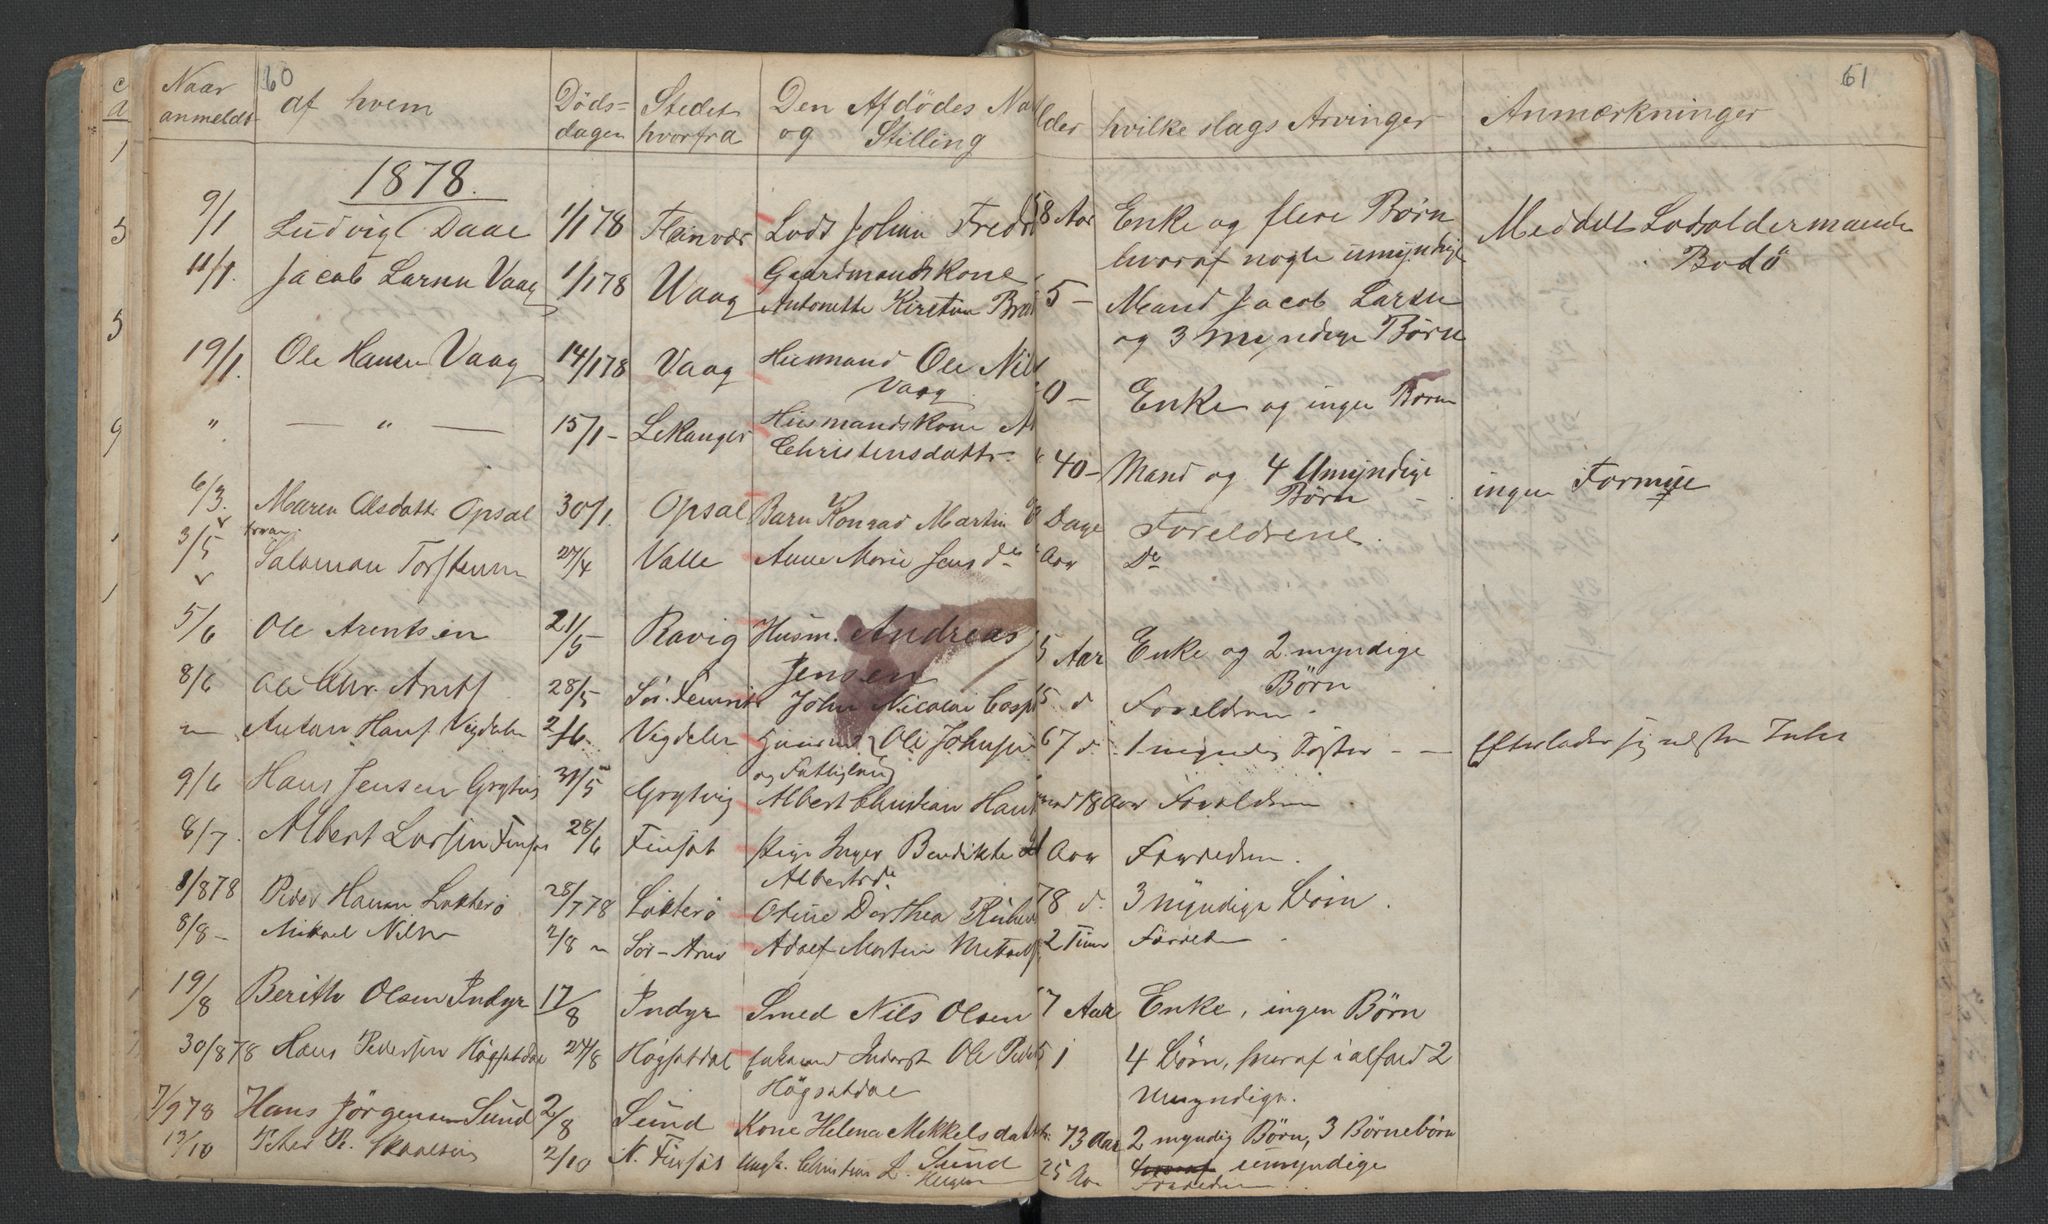 60
61
Naar anmeldt
af hvem
Døds=dagen
Stedet hvorfra
Den Afdødes Na
og Stilling
lder
hvilke slags Arvinger
Anmærkninger
1878.
9/1 Ludvig Daae 1/1 78 Fleinvær Lods Johan Fredr 58 Aar Enke og flere Børn Meddelt Lodsoldermanden
hvoraf nogle umyndige Bodö
11/1. Jacob Larsen Vaag 1/1 78 Vaag Gaardmandskone
Antonette Kirstine 5 — Mand Jacob Larsen
og 3 myndige Börn
19/1. Ole Hansen Vaag 14/1 78 Vaag Huusmand Ole Nils
Vaag 0 — Enke og ingen Børn
" — " — 15/1 - Lekanger Huusmandskone
Christensdatter 40 — Mand og 4 Umyndige
Börn ingen Formue
6/3. Maren Olsdatter Opsal 30/1. Opsal Barn Konrad Martin Dage Foreldrene.
3/5 Salomon Torstensen 27/4 Valle Anne Marie Jensd. Aar Do
5/6 Ole Arentsen 21/5 Ravig Husm. Andreas
Jensen 5 Aar Enke og 2 myndige
Börn
8/6 Ole Chr. Arntz 28/5 Sör. John Nicolai 5 d Foreldrene.
" Anton Hans Vigdalen 2/6 Vigdelen Ole Johnsen
og Fattiglem 67 d. 1 myndig Søster — Efterlader sig intet
9/6 Hans Jensen Grytvig 31/5 Grytvig Albert Christian Hans 18 Aar Foreldrene
8/7. Albert Larsen Finsæt 28/6 Finsæt Pige Inger Bendikte
Albertsd. Aar Forældrene.
1/8 78 Peder Hansen Løkterø 28/7 78 Løkterø Oline Dorthea 78 d. 3 myndige Børn.
8/8 - Mikael Nilsen 2/8 " Sör-Arnø Adolf Morten 2 Timer
19/8 Berith Olsen Indyr 17/8 Indyr Smed Nils Olsen 7 Aar Enke, ingen Børn
30/8 78 Hans Pedersen Høgsætdal 27/8 Høgsætdal Inderst Ole Peder
Høgsætdal 51 4 Börn, hvoraf ialfald 2
Umyndige.
7/9 78 Hans Jörgensen Sund 2/8 Sund Kone Helena Mikkelsdatter
Sund 73 Aar 2 myndig Børn, 3 Børnebörn
umyndige
13/10 Peder 2/10 N. Finsæt Ungk. Christian L. 25 Aar Forældrene